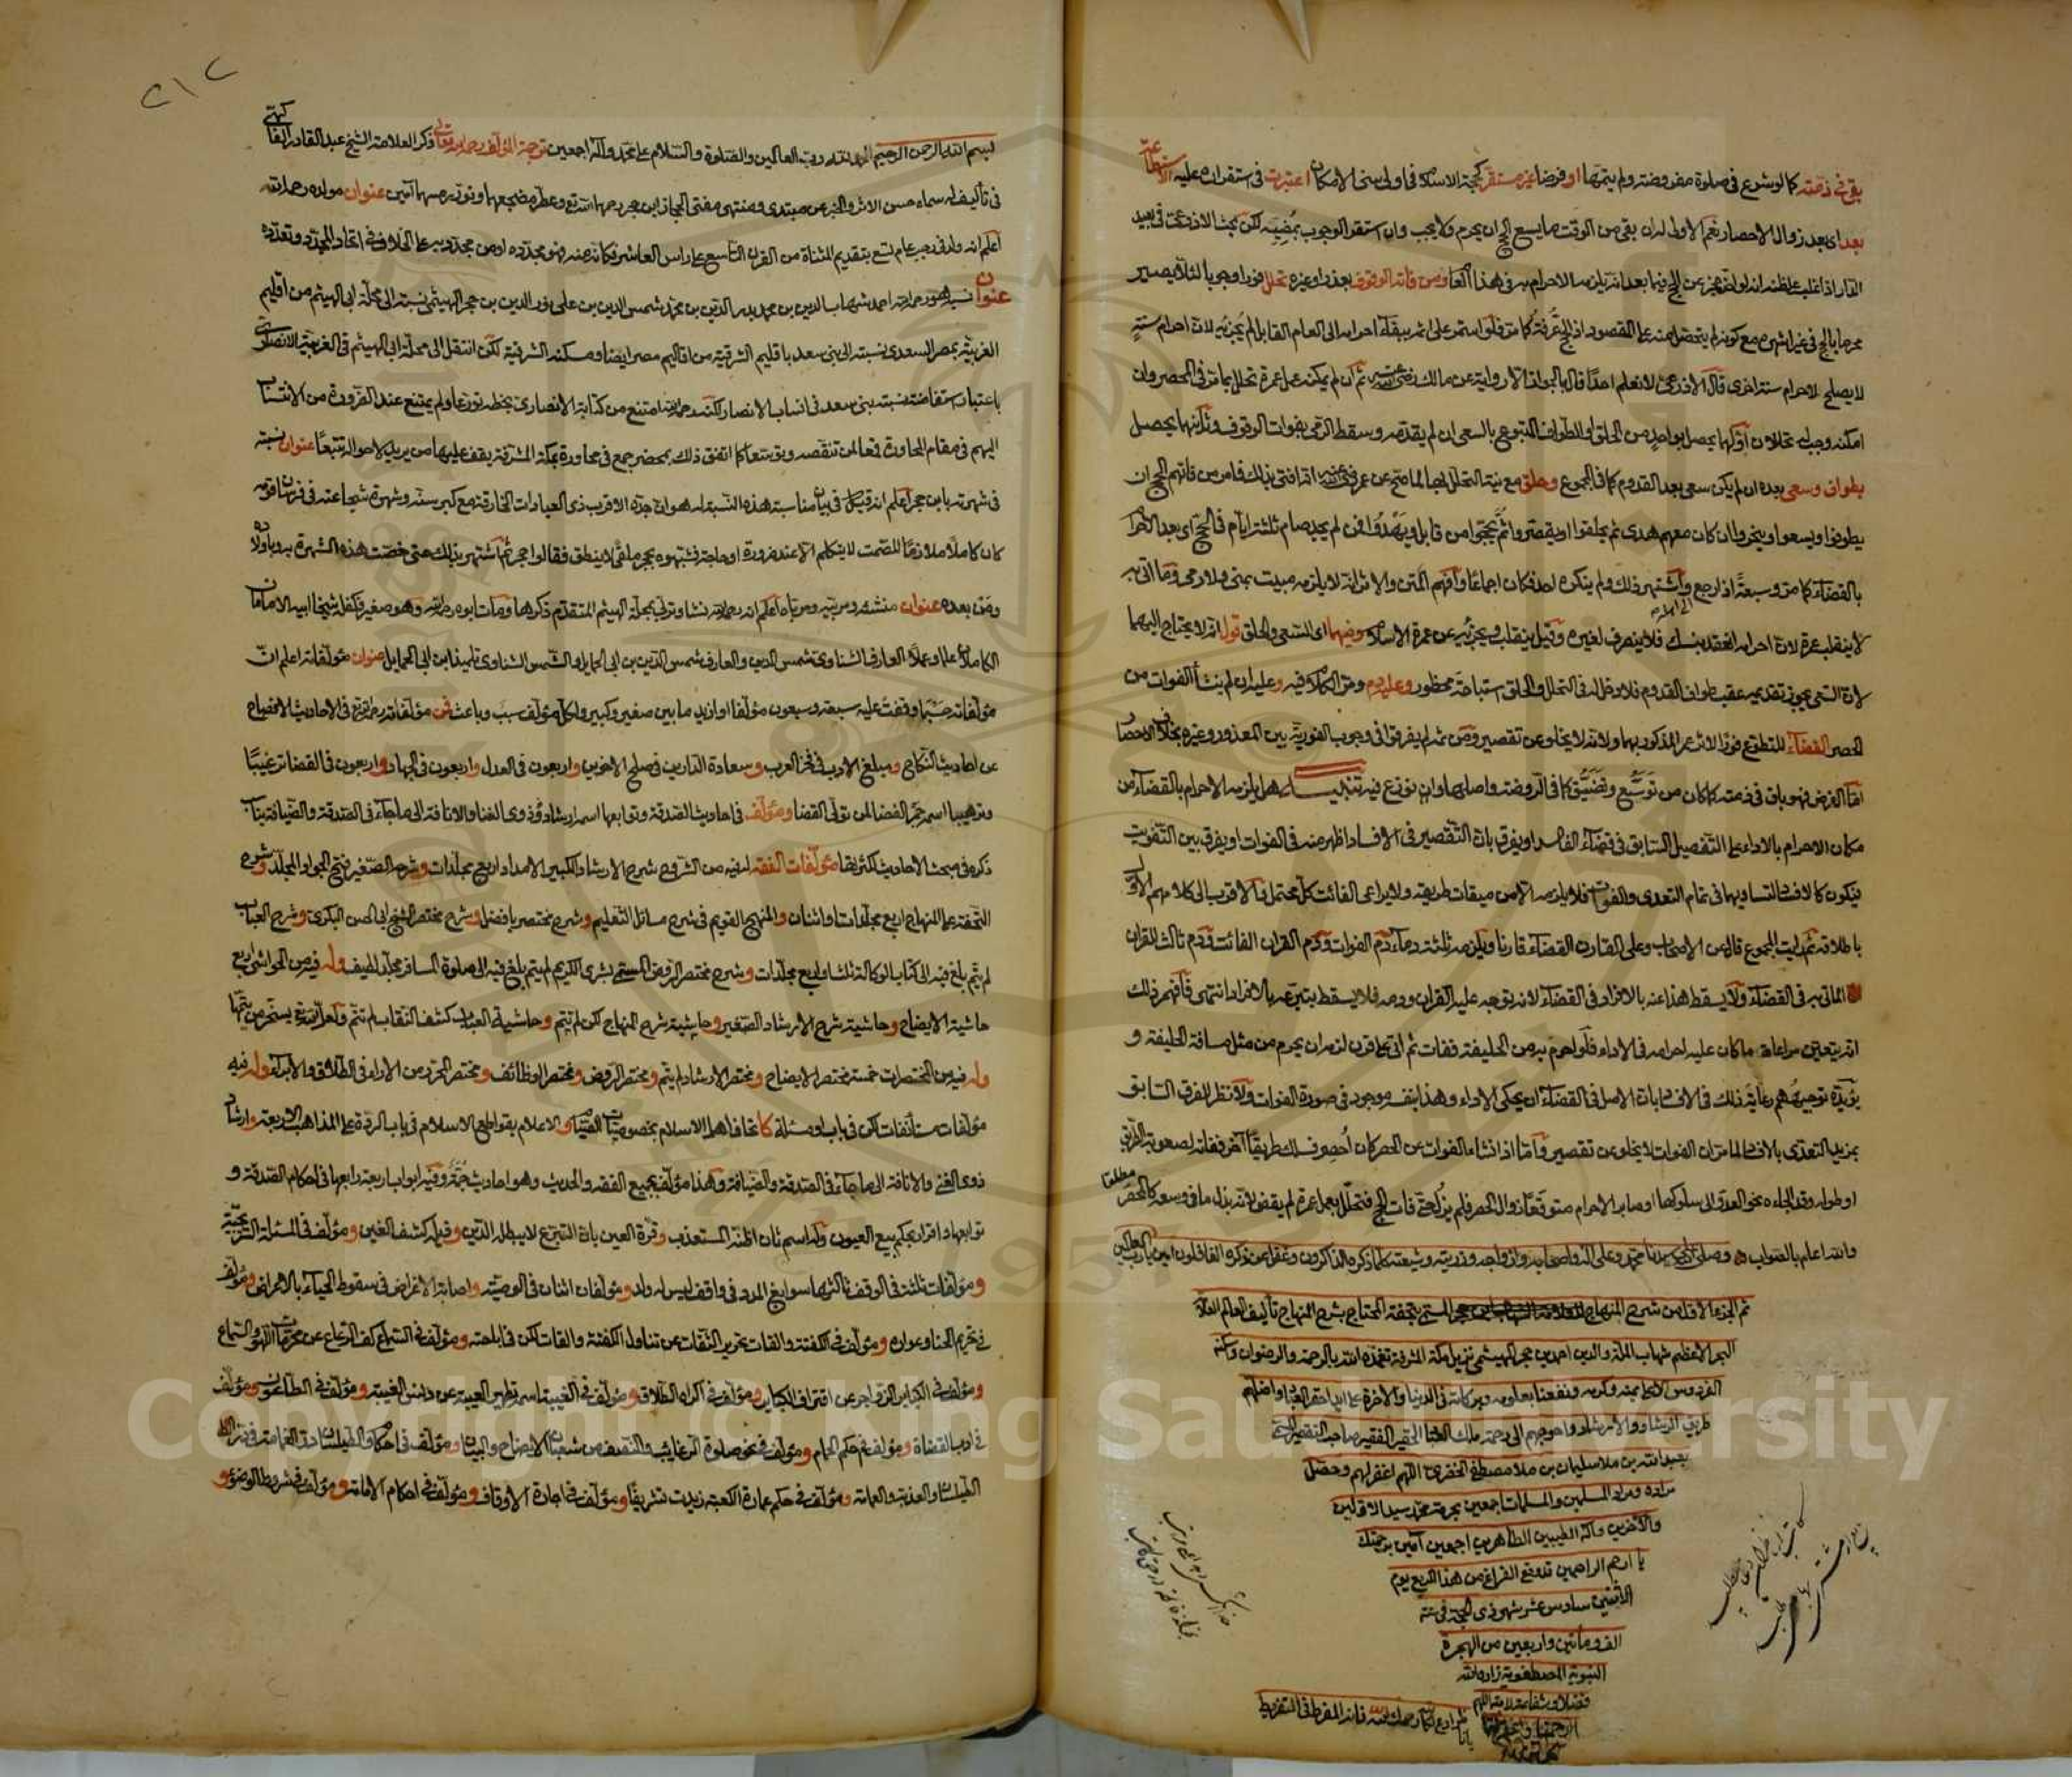 بقي في ذمته كما لو شرع في صلوة مفروضة ولم يتمها او فرضا غير مستقر كحجة الاسلام في اولى سني الامكان اعتبرت في استقراره عليه الاستطاعة
بعد اي بعد زوال الاحصار نعم الاولى له ان بقي من الوقت ما يسع الحج ان يحرم ولا يجب وان استقر الوجوب بمضيه لكن بحث الاذرعي في بعيد
الدار اذا غلب على ظنه انه لو اخر عجز عن الحج فيما بعد انه يلزمه الاحرام به في هذا العام ومن فاته الوقوف بعذر او غيره تحلل فورا وجوبا لئلا يصير
محرما بالحج في غير اشهره مع كونه لم يتحصل منه على المقصود اذ الحج عرفة كما مر فلو استمر على احرامه الى العام القابل لم يجزيه لان احرام سنة
لا يصلح لاحرام سنة اخرى قال الاذرعي لا نعلم احدا قال بالجواز الا رواية عن مالك رضي الله عنه ثم ان لم يمكنه عمل عمرة تحلل بما مر في المحصر وان
امكنه وجب تحللان اولهما يحصل بواحد من الحلق او الطواف المتبوع بالسعي ان لم يقدمه وسقط الرمي بفوات الوقوف وثانيهما يحصل
بطواف وسعي بعده ان لم يكن سعى بعد القدوم كما في المجموع وحلق مع نية التحلل بها لما صح عن عمر رضي الله عنه انه افتى بذلك فامر من فاتهم الحج ان
يطوفوا ويسعوا وينحروا ان كان معهم هدي ثم يحلقوا او يقصروا ثم يحجوا من قابل ويهدوا فمن لم يجد صام ثلثة ايام في الحج اي بعد الاحرام
بالقضاء كما مر وسبعة اذا رجع الى اهله واشتهر ذلك ولم ينكره احد فكان اجماعا وافهم المتن والاثر انه لا يلزمه مبيت بمنى ولا رمي وما اتى به
لا ينقلب عمرة لان احرامه انعقد بنسك فلا ينصرف لغيره وقيل ينقلب ويجزئه عن عمرة الاسلام وفيهما اي السعي والحلق قول انه لا يحتاج اليهما
لان السعي يجوز تقديمه عقب طواف القدوم فلا دخل له في التحلل والحلق استباحة محظور وعليه دم ومر الكلام فيه وعليه ان لم ينشأ الفوات من
الحصر القضاء للتطوع فورا لاثر عمر المذكور بهما ولانه لا يخلو عن تقصير ومن ثم لم يفرقوا في وجوب الفورية بين المعذور وغيره بخلاف الاحصار
اما الفرض فهو باق في ذمته كما كان من توسع وتضيق كما في الروضة واصلها وان نوزع فيه تنبيه هل يلزمه الاحرام بالقضاء من
مكان الاحرام بالاداء على التفصيل السابق في قضاء الفاسد او يفرق بان التقصير في الافساد اظهر منه في الفوات او يفرق بين التفويت
فيكون كالافساد لتساويهما في تمام التعدي والفوات فلا يلزمه الا من ميقات طريقه ولا يراعى الفائت كل محتمل والاقرب الى كلامهم الاول
باطلاقه ثم رايت المجموع قال عن الاصحاب وعلى القارن القضاء قارنا ويلزمه ثلثة دماء دم الفوات ودم القران الفائت ودم ثالث للقران
الماتي به في القضاء ولا يسقط هذا عنه بالافراد في القضاء لانه توجه عليه القران ودمه فلا يسقط بتبرعه بالافراد انتهى فافهم ذلك
انه يتعين مراعاة ما كان عليه احرامه في الاداء فلو احرم به من الحليفة ففات ثم اتى على قرن لزمه ان يحرم من مثل مسافة الحليفة و
يؤيده توجيههم رعاية ذلك في الافساد بان الاصل في القضاء ان يحكي الاداء وهذا بنفسه موجود في صورة الفوات ولا نظر للفرق السابق
بمزيد التعدي بالافساد لما مر ان الفوات لا يخلو عن تقصير واما اذا انشاء الفوات عن الحصر كان احصر فسلك طريقا آخر ففاته لصعوبة الطريق
او طوله وقد الجاءه نحو العدو الى سلوكها او صابر الاحرام متوقعا زوال الحصر فلم يزل حتى فات الحج فتحلل بعمل عمرة لم يقض لانه بذل ما في وسعه كالمحصر مطلقا
والله اعلم بالصواب وصلى الله على سيدنا محمد وعلى آله واصحابه وازواجه وذريته وشيعته كلما ذكره الذاكرون وغفل عن ذكره الغافلون امين يا رب العالمين
تم الجزء الاول من شرح المنهاج المسمى بتحفة المحتاج بشرح المنهاج تأليف العالم العلامة
البحر الاعظم شهاب الملة والدين احمد بن حجر الهيتمي نزيل مكة المشرفة تغمده الله بالرحمة والرضوان واسكنه
الفردوس الاعلى بمنه وكرمه ونفعنا بعلومه وبركاته في الدنيا والآخرة على ايدي احقر العباد واضلهم
طريق الرشاد والارشاد واحوجهم الى رحمة ملك العباد الحقير الفقير صاحب التقصير
عبد الله بن ملا سليمان بن ملا مصطفى الخضري اللهم اغفر لهم وحصل
مراده ومراد المسلمين والمسلمات اجمعين بحرمة محمد سيد الاولين
والآخرين وآله الطيبين الطاهرين اجمعين آمين برحمتك
يا ارحم الراحمين قد وقع الفراغ من هذا الربع يوم
الاثنين سادس عشر شهر ذي الحجة في سنة
الف ومأتين واربعين من الهجرة
النبوية المصطفوية زاده الله
فضلا وشفاعة لامته اللهم
ارحمنا واغفر لنا
٢١٢
بسم الله الرحمن الرحيم الحمد لله رب العالمين والصلوة والسلام على محمد وآله اجمعين ترجمة المؤلف رحمه الله تعالى ذكر العلامة الشيخ عبد القادر الفاكهي
في تأليف له سماه حسن الاثر والخبر عن مبتدى ومنتهى مفتي الحجاز ابن حجر رحمهما الله تع وعطر مضجعهما ونور رمسهما آمين عنوان مولده رحمه الله
اعلم انه ولد في رجب عام تسع بتقديم المثناة من القرن التاسع على راس العاشر فكانه منه فهو مجدده او من مجدديه على الخلاف في اتحاد المجدد وتعدده
عنوان نسبه هو رحمه الله احمد شهاب الدين بن محمد بدر الدين بن محمد شمس الدين بن علي نور الدين بن حجر الهيثمي نسبة الى محلة ابي الهيثم من اقليم
الغربية بمصر السعدي نسبة الى بني سعد باقليم الشرقية من اقاليم مصر ايضا ومسكنه الشرقية لكن انتقل الى محلة ابي الهيثم في الغربية الانصاري
باعتبار استفاضة نسبة بني سعد في انساب الانصار لكنه رحمه الله امتنع من كتابة الانصاري بخطه تورعا ولم يمتنع عند الضرورة من الانتساب
اليهم في مقام المحاورة قمعا لمن تنقصه وتوقعا كما اتفق ذلك بمحضر جمع في مجاورة بمكة المشرفة يقف عليها من يريد الاحوال تتبعا عنوان نسبته
في شهرته بابن حجر اعلم انه قيل في بيان مناسبة هذه النسبة له هو ان جده الاقرب ذي العبادات الخارقة مع كبر سنه وشهرة شجاعته في فرسان قومه
كان كاملا ملازما للصمت لا يتكلم الا عند ضرورة او حاجة فشبهوه بحجر ملقى لا ينطق فقالوا حجر ثم اشتهر بذلك حتى خصت هذه الشهرة به وباولاده
ومن بعده عنوان منشئه ومربيه ومرباه اعلم انه رحمه الله نشا وتربى بمحلة الهيثم المتقدم ذكرها ومات ابوه رحمه الله وهو صغير وكفله شيخا ابيه الامامان
الكاملان علما وعملا العارف الشناوي شمس الدين والعارف شمس الدين بن ابي الحمايل والشمس الشناوي تلميذ ابن ابي الحمايل عنوان مؤلفاته اعلم ان
مؤلفاته حسبما وقفت عليه سبعة وسبعون مؤلفا او ازيد ما بين صغير وكبير ولكل مؤلف سبب وباعث فمن مؤلفاته رحمه الله تع في الاحاديث الافصاح
عن احاديث النكاح ومبلغ الارب في فخر العرب وسعادة الدارين في صلح الاخوين واربعون في العدل واربعون في الجهاد واربعون في القضا ترغيبا
وترهيبا اسمه جمر الغضا لمن تولى القضا ومؤلف في احاديث الصدقة وتوابعها اسمه ارشاد ذوي الغنا والانافة الى ما جاء في الصدقة والضيافة
ذكره في مبحث الاحاديث لكثرتها مؤلفات الفقه له فيه من الشروح شرح الارشاد الكبير الامداد اربع مجلدات وشرحه الصغير فتح الجواد المجلد وشرح
التحفة على المنهاج اربع مجلدات او اثنان والمنهج القويم في شرح مسائل التعليم وشرح مختصر بافضل وشرح مختصر الشيخ ابي الحسن البكري وشرح العباب
لم يتم بلغ فيه الى كتاب الوكالة ثلث او اربع مجلدات وشرح مختصر الروض المسمى بشرى الكريم لم يتم بلغ فيه الى صلوة المسافر مجلد لطيف وله فيه من الحواشي اربع
حاشية الايضاح وحاشية شرح الارشاد الصغير وحاشية شرح المنهاج لكن لم تتم وحاشية العباب كشف النقاب لم تتم ولعل الله تع يسخر من يتمها
وله فيه من المختصرات خمسة مختصر الايضاح ومختصر الارشاد لم يتم ومختصر الروض ومختصر الوظائف ومختصر المحرر من الاراء في الطلاق والابراء وله فيه
مؤلفات مستأنفات لكن في باب او مسئلة كاتحاف اهل الاسلام بخصوصيات الصيام والاعلام بقواطع الاسلام في باب الردة على المذاهب الاربعة وارشاد
ذوي الغنى والانافة الى ما جاء في الصدقة والضيافة وهذا مؤلف بجميع الفقه والحديث وهو احاديث جمة وفيه ابواب اربعة رابعها في احكام الصدقة و
توابعها وافراز بحكم بيع العيون وله اسم ثان المنهل المستعذب وقرة العين بان التبرع لا يبطله الدين وذيله كشف الغين ومؤلف في المسئلة السريجية
ومؤلفات ثلثة في الوقف ثالثها سوابغ المدد في واقف ليس له ولد ومؤلفان اثنان في الوصية واصابة الاغراض في سقوط الحياء بالاعراض ومؤلف
في تحريم الحنا وعواره ومؤلف في الكفتة والقات تحرير الثقات عن تناول الكفتة والقات لكن في اباحته ومؤلف في السماع كف الرعاع عن محرمات اللهو والسماع
ومؤلف في الكبائر الزواجر عن اقتراف الكبائر ومؤلف في اكراه الطلاق ومؤلف في الغيبة اسمه تطهير العيبة عن دنس الغيبة ومؤلف في الطاعون ومؤلف
في ادب القضاة ومؤلف في حكم الحمام ومؤلف في نحو صلوة الرغائب والنصف من شعبان الايضاح والبيان ومؤلف في احكام الطيلسان
الطيلسان والعذبة والعمامة ومؤلف في حكم عمارة الكعبة زيدت تشريفا ومؤلف في اجارة الاوقاف ومؤلف في احكام الامامة ومؤلف في شروط الوضوء و
Copyright © King Saud University
1957